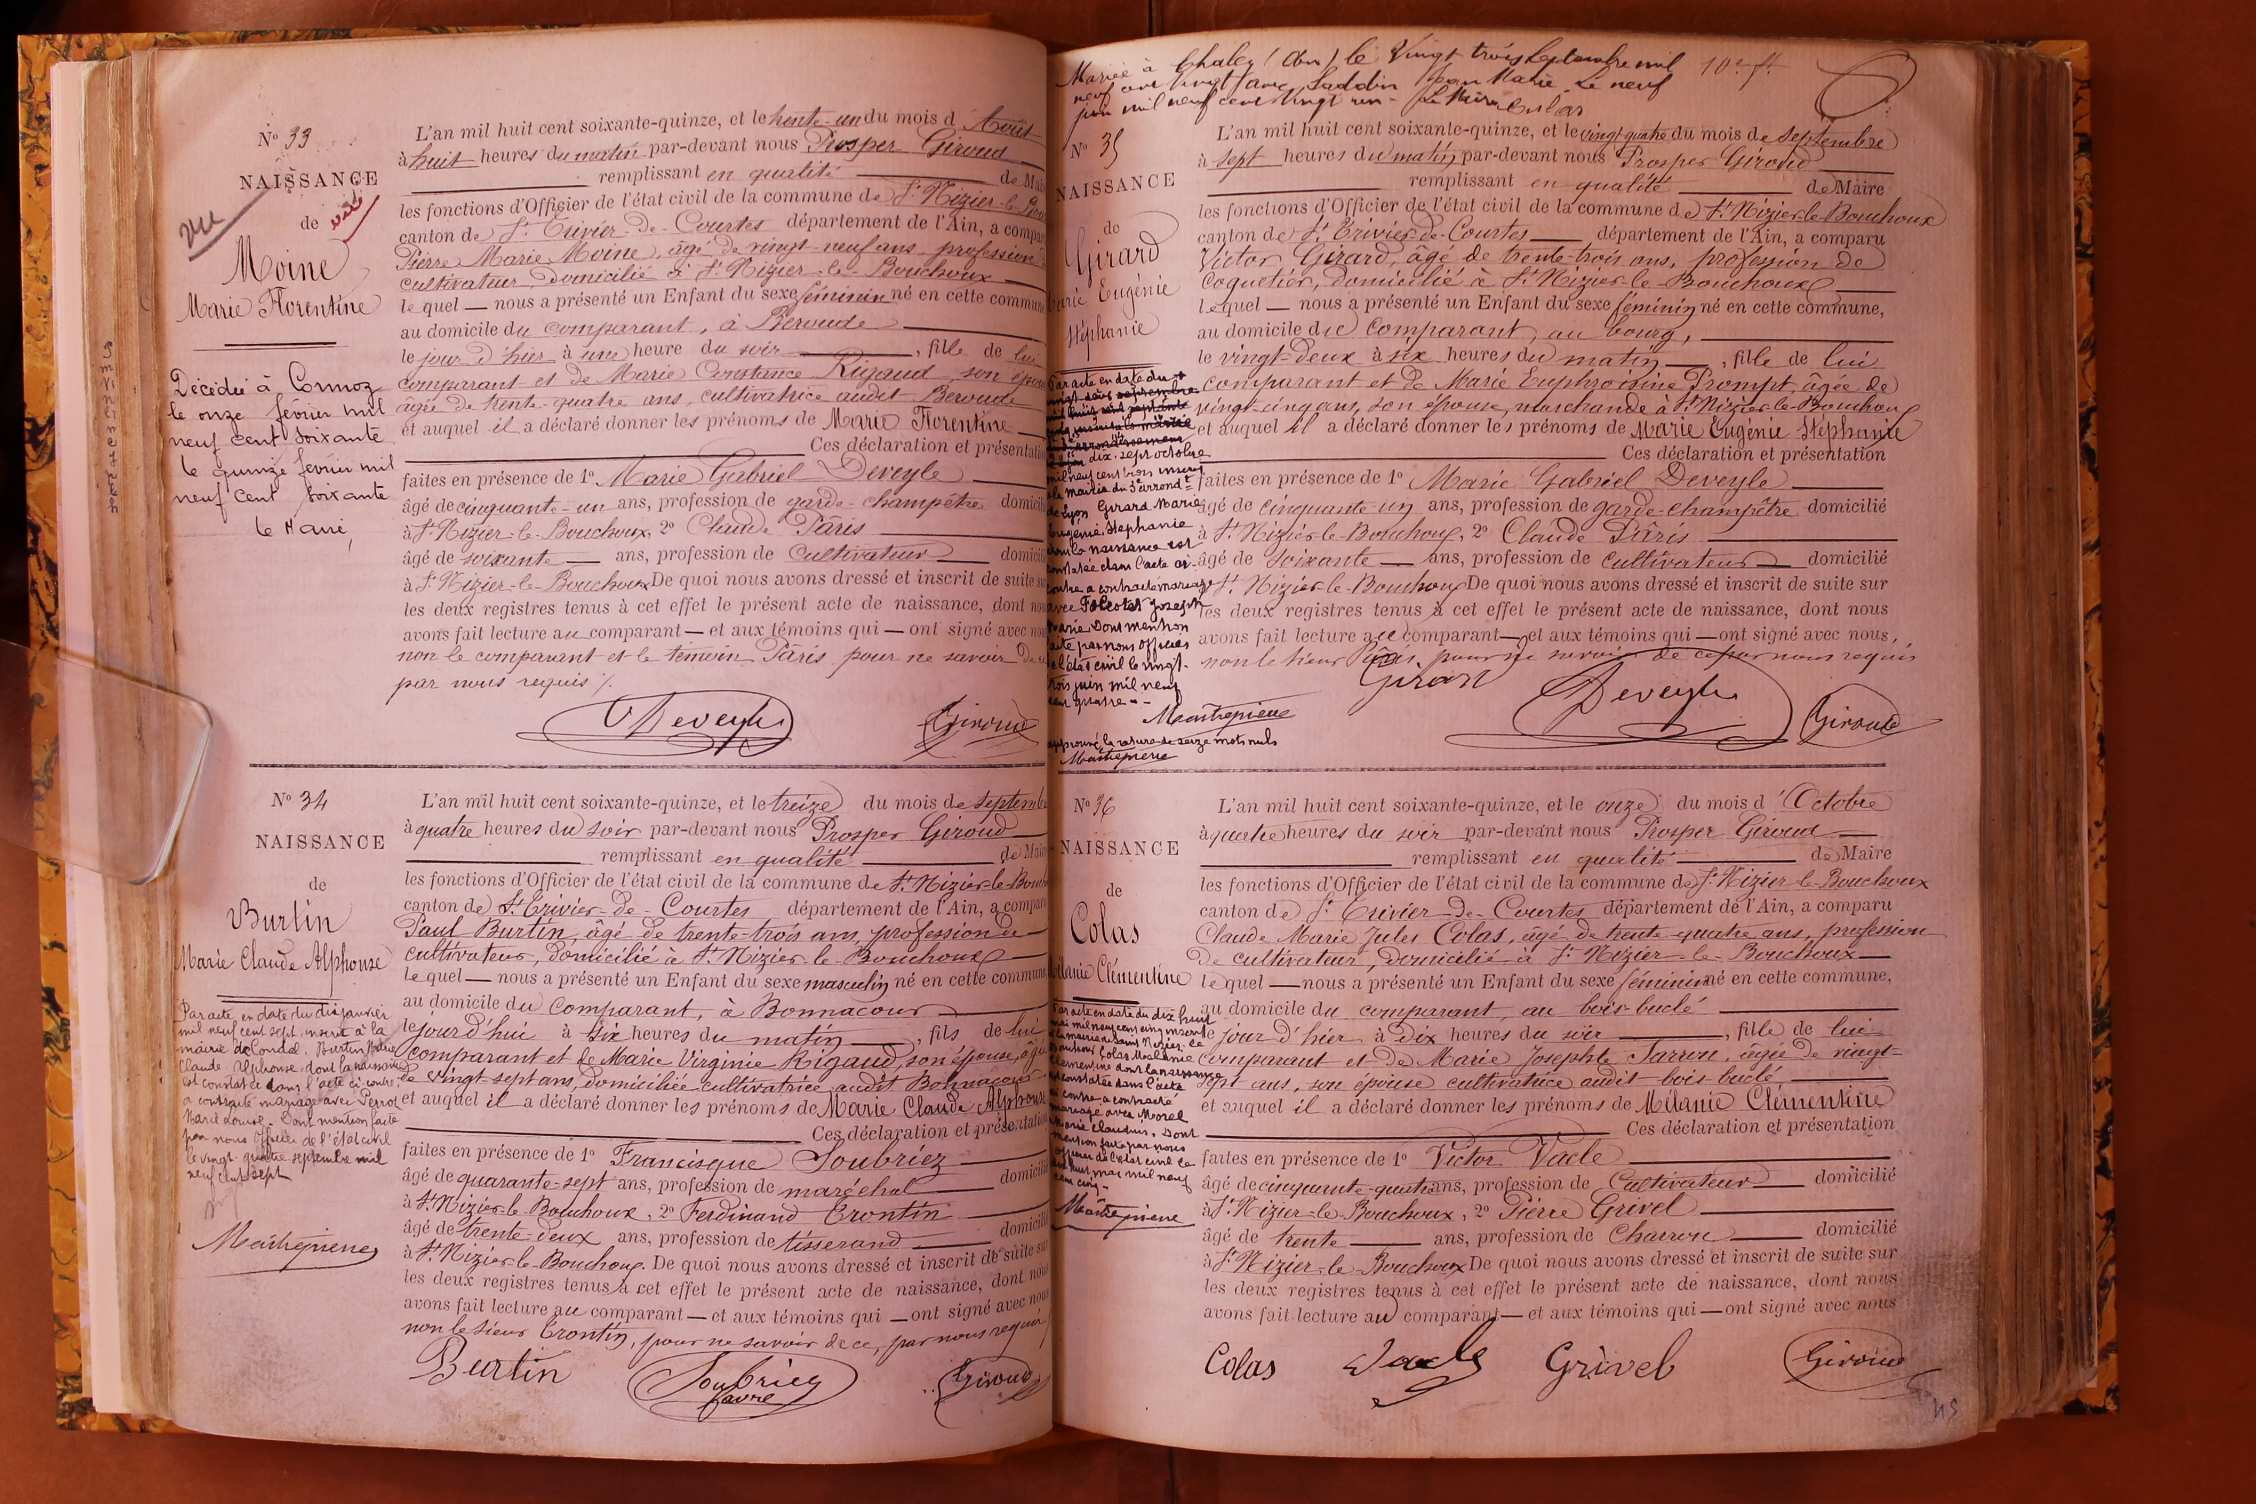 N° 33
NAISSANCE
de
vu
Moine
Marie Florentine
Décédée à Cormoz
le onze février mil
neuf cent soixante
le quinze février mil
neuf cent soixante
le Maire,
L'an mil huit cent soixante-quinze, et le trente-un du mois d'Août
à huit heures du matin par-devant nous Prosper Giroud
remplissant en qualité de Maire
les fonctions d'Officier de l'état civil de la commune de St Nizier-le-Bou
canton de St Trivier-de-Courtes département de l'Ain, a compar
Pierre Marie Moine, âgé de vingt-neuf ans profession
cultivateur, domicilié à St Nizier-le-Bouchoux
lequel — nous a présenté un Enfant du sexe féminin né en cette commune
au domicile du comparant, à Beroude
le jour d'hier à une heure du soir, fille de lui
comparant et de Marie Constance Rigaud, son épouse
âgée de trente-quatre ans, cultivatrice audit Beroude
et auquel il a déclaré donner les prénoms de Marie Florentine
Ces déclaration et présentation
faites en présence de 1° Marie Gabriel Deveyle
âgé de cinquante-un ans, profession de garde-champêtre domicilié
à St Nizier-le-Bouchoux, 2° Claude Pâris
âgé de soixante — ans, profession de cultivateur domicilié
à St Nizier-le-Bouchoux De quoi nous avons dressé et inscrit de suite sur
les deux registres tenus à cet effet le présent acte de naissance, dont nous
avons fait lecture au comparant — et aux témoins qui — ont signé avec nous
non le comparant et le témoin Pâris pour ne savoir de ce
par nous requis ./.
Deveyle Giroud
N° 34
NAISSANCE
de
Burtin
Marie Claude Alphonse
Par acte en date du dix janvier
mil neuf cent sept, inscrit à la
mairie de Condal, Burtin Marie
Claude Alphonse dont la naissance
est constatée dans l'acte ci-contre,
a contracté mariage avec Perrot
Marie Louise. Dont mention faite
par nous Officier de l'état civil
le vingt quatre septembre mil
neuf cent sept
L'an mil huit cent soixante-quinze, et le treize du mois de septembre
à quatre heures du soir par-devant nous Prosper Giroud
remplissant en qualité de Maire
les fonctions d'Officier de l'état civil de la commune de St Nizier-le-Bouch
canton de St Trivier-de-Courtes département de l'Ain, a comparu
Paul Burtin, âgé de trente-trois ans, profession de
cultivateur, domicilié à St Nizier-le-Bouchoux
lequel — nous a présenté un Enfant du sexe masculin né en cette commune
au domicile du comparant, à Bonnacour
le jourd'hui à six heures du matin, fils de lui
comparant et de Marie Virginie Rigaud, son épouse, âgée
de vingt-sept ans, domiciliée cultivatrice audit Bonnacour
et auquel il a déclaré donner les prénoms de Marie Claude Alphonse
Ces déclaration et présentation
faites en présence de 1° Francisque Soubriez
âgé de quarante-sept ans, profession de maréchal domicilié
à St Nizier-le-Bouchoux, 2° Ferdinand Crontin
âgé de trente-deux ans, profession de tisserand domicilié
à St Nizier-le-Bouchoux. De quoi nous avons dressé et inscrit de suite sur
les deux registres tenus à cet effet le présent acte de naissance, dont nous
avons fait lecture au comparant — et aux témoins qui — ont signé avec nous
non le sieur Crontin, pour ne savoir de ce, par nous requis
Burtin Giroud
Mariée à Chaley (Ain) le Vingt trois Septembre mil
neuf cent vingt avec Jean Marie Le neuf
juin mil neuf cent vingt un - Le Maire
N° 35
NAISSANCE
de
Girard
Marie Eugénie
Stéphanie
dix-sept octobre
mil neuf cent trois inscrit
à la mairie du 3e arrondt
de Lyon Girard Marie
Eugénie Stéphanie
dont la naissance est
constatée dans l'acte ci-
contre a contracté mariage
avec Joseph
Marie Dont mention
faite par nous officier
de l'état civil le vingt-
trois juin mil neuf
cent quatre
approuvé la rature de seize mots nuls
L'an mil huit cent soixante-quinze, et le vingt-quatre du mois de septembre
à sept heures du matin par-devant nous Prosper Giroud
remplissant en qualité de Maire
les fonctions d'Officier de l'état civil de la commune de St Nizier-le-Bouchoux
canton de St Trivier-de-Courtes département de l'Ain, a comparu
Victor Girard, âgé de trente-trois ans, profession de
coquetier, domicilié à St Nizier-le-Bouchoux
lequel — nous a présenté un Enfant du sexe féminin né en cette commune,
au domicile du comparant, au bourg,
le vingt-deux à six heures du matin, fille de lui
comparant et de Marie Euphroisine Prompt, âgée de
vingt-cinq ans, son épouse, marchande à St Nizier-le-Bouchoux
et auquel il a déclaré donner les prénoms de Marie Eugénie Stéphanie
Ces déclaration et présentation
faites en présence de 1° Marie Gabriel Deveyle
âgé de cinquante-un ans, profession de garde-champêtre domicilié
à St Nizier-le-Bouchoux, 2° Claude Pâris
âgé de soixante — ans, profession de cultivateur domicilié
à St Nizier-le-Bouchoux De quoi nous avons dressé et inscrit de suite sur
les deux registres tenus à cet effet le présent acte de naissance, dont nous
avons fait lecture au comparant — et aux témoins qui — ont signé avec nous,
non le sieur Pâris, pour ne savoir de ce par nous requis
Girard Deveyle Giroud
N° 36
NAISSANCE
de
Colas
Mélanie Clémentine
Par acte en date du dix huit
mai mil neuf cent cinq inscrit
à la mairie de Saint Nizier-le
Bouchoux Colas Mélanie
Clémentine dont la naissance
est constatée dans l'acte
ci contre a contracté
mariage avec Morel
Marie Claudius. Dont
mention faite par nous
officier de l'état civil le
dix huit mai mil neuf
cent cinq
L'an mil huit cent soixante-quinze, et le onze du mois d'Octobre
à quatre heures du soir par-devant nous Prosper Giroud
remplissant en qualité de Maire
les fonctions d'Officier de l'état civil de la commune de St Nizier-le-Bouchoux
canton de St Trivier-de-Courtes département de l'Ain, a comparu
Claude Marie Jules Colas, âgé de trente-quatre ans, profession
de cultivateur, domicilié à St Nizier-le-Bouchoux
lequel — nous a présenté un Enfant du sexe féminin né en cette commune,
au domicile du comparant, au bois-buclé
le jour d'hier à dix heures du soir, fille de lui
comparant et de Marie Josephte Sarron, âgée de vingt-
sept ans, son épouse cultivatrice audit bois buclé
et auquel il a déclaré donner les prénoms de Mélanie Clémentine
Ces déclaration et présentation
faites en présence de 1° Victor Vacle
âgé de cinquante-quatre ans, profession de Cultivateur domicilié
à St Nizier-le-Bouchoux, 2° Pierre Grivel
âgé de trente ans, profession de Charron domicilié
à St Nizier-le-Bouchoux De quoi nous avons dressé et inscrit de suite sur
les deux registres tenus à cet effet le présent acte de naissance, dont nous
avons fait lecture au comparant — et aux témoins qui — ont signé avec nous
Colas Vacle Grivel Giroud